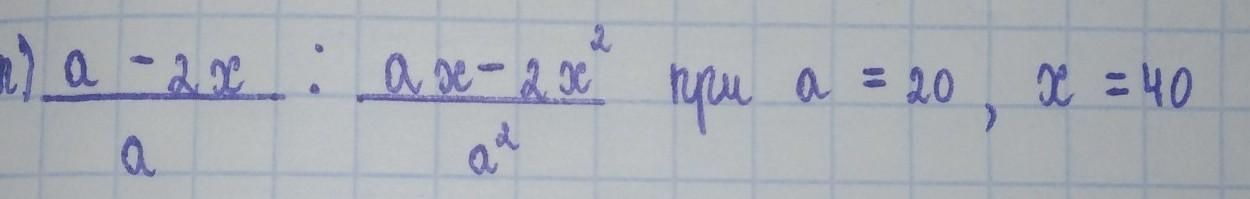 a - 2x / a : ax - 2x² / a² при a = 20, x = 40